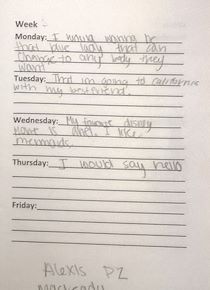 Week
Monday: I would wanna be
that blue lady that can
change to any body they
want.
Tuesday: That im going to california
with my bestfriend.
Wednesday: My favorite disney
movie is ariel. I like
mermaids.
Thursday: I would say hello
Friday:
Alexis P2